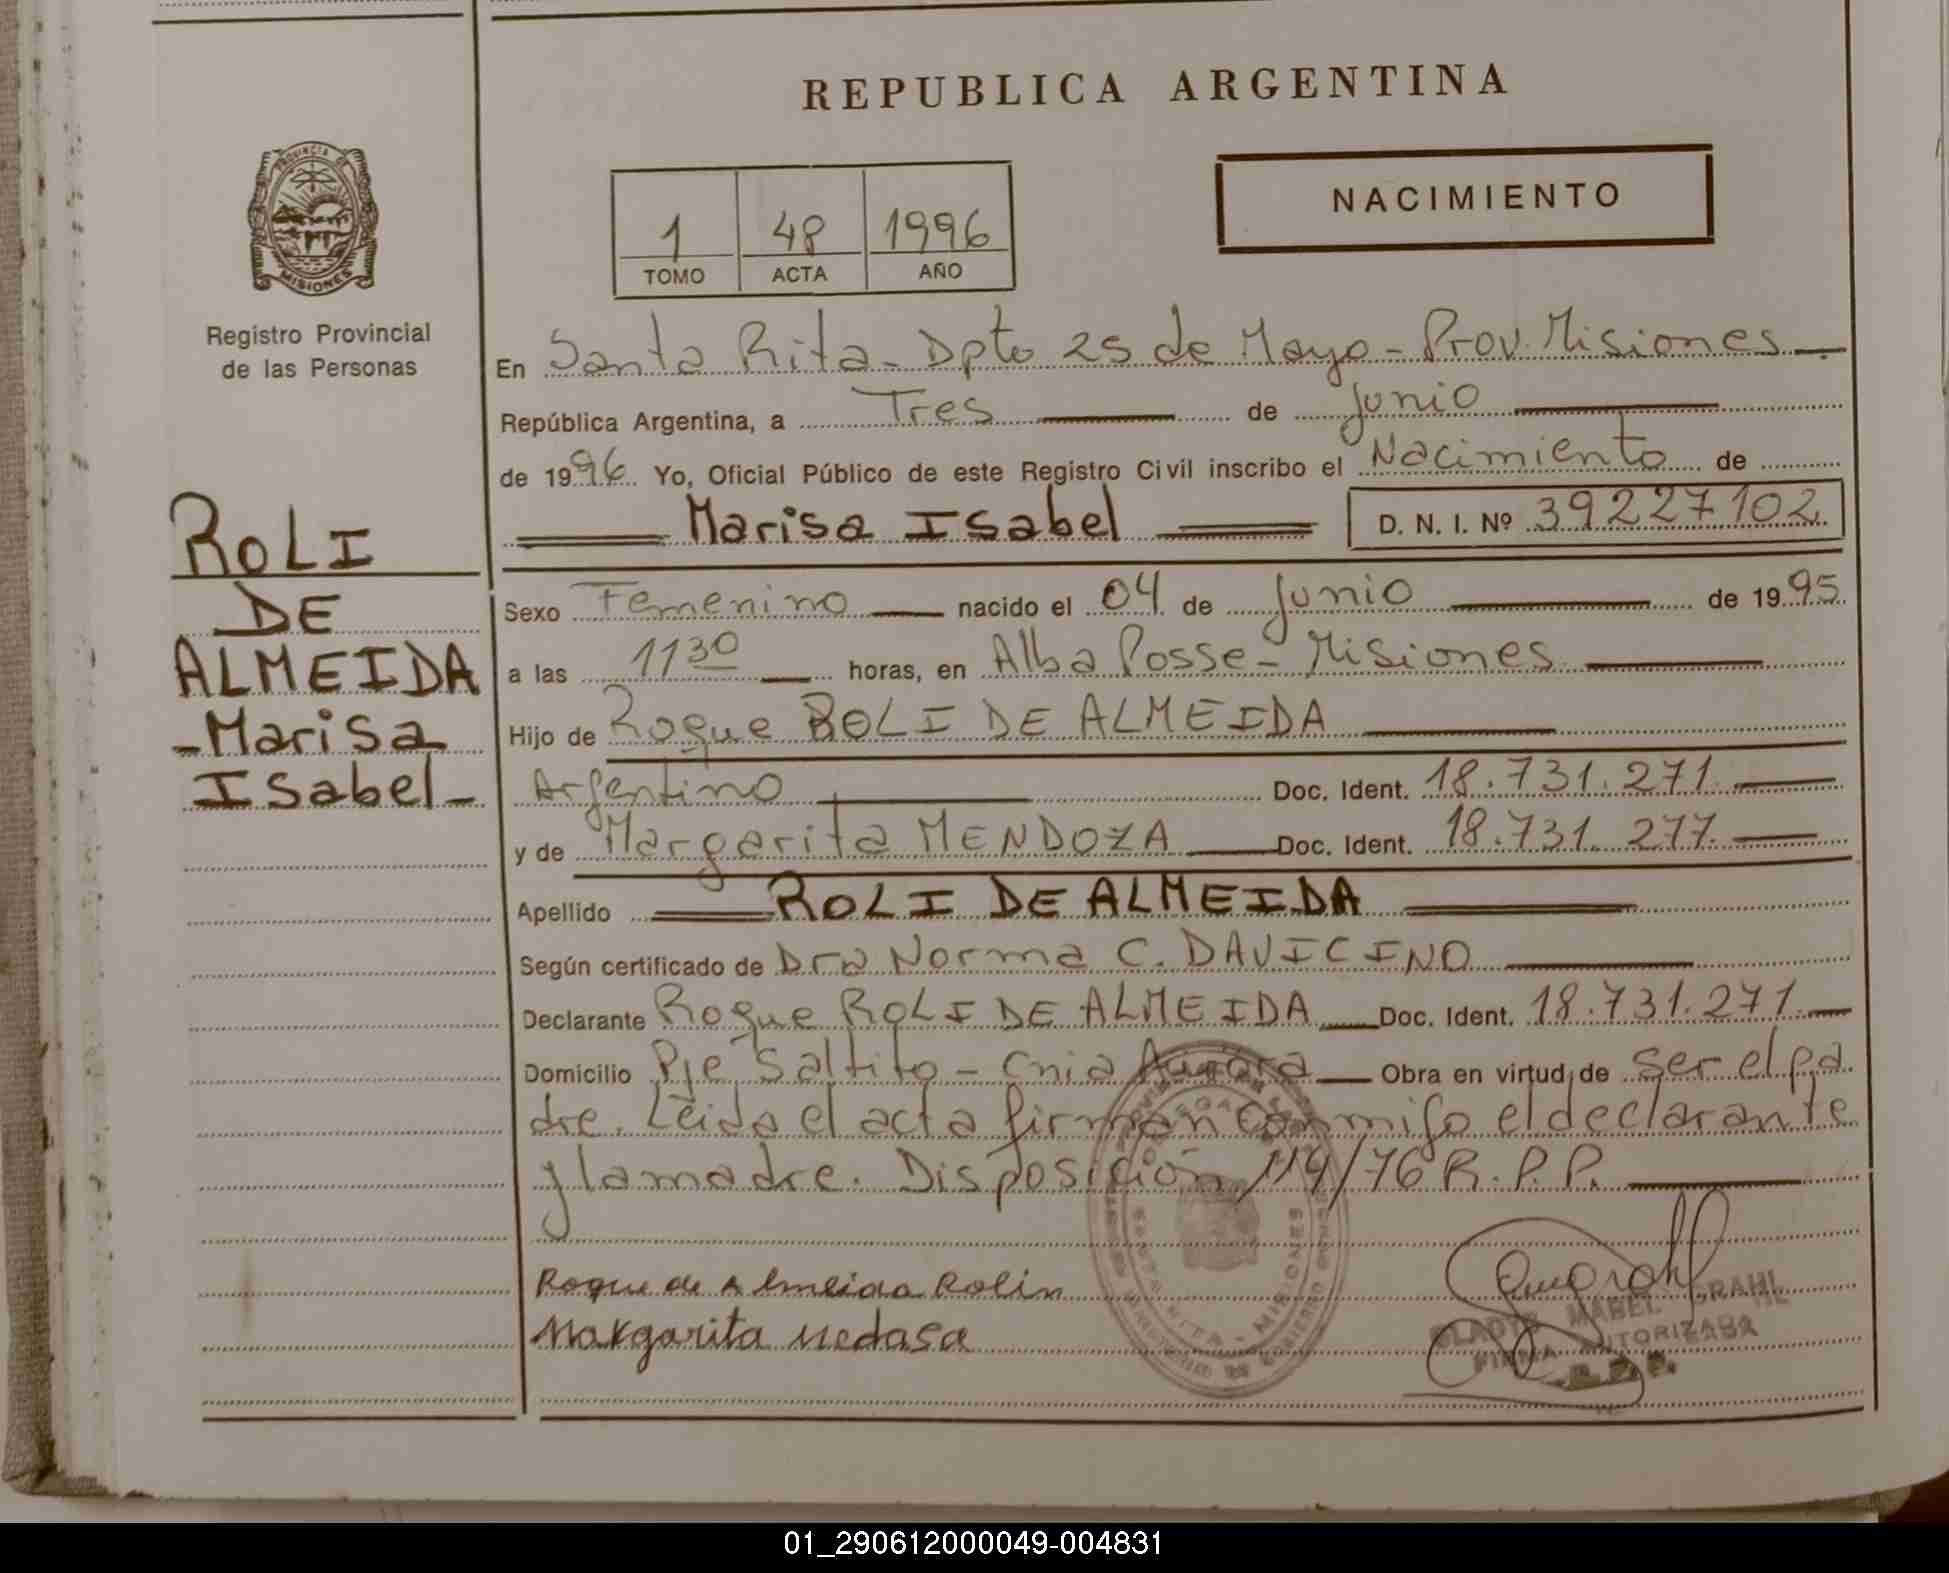 REPUBLICA ARGENTINA
PROVINCIA DE
MISIONES
Registro Provincial
de las Personas
1 48 1996
TOMO ACTA AÑO
NACIMIENTO
En Santa Rita - Dpto 25 de Mayo - Prov. Misiones
República Argentina, a Tres de Junio
de 1996 Yo, Oficial Público de este Registro Civil inscribo el Nacimiento de
Marisa Isabel D. N. I. Nº 39227102
ROLI
DE
ALMEIDA
- Marisa
Isabel -
Sexo Femenino nacido el 04 de Junio de 1995
a las 11 30 horas, en Alba Posse - Misiones
Hijo de Roque ROLI DE ALMEIDA
Argentino Doc. Ident. 18.731.271
y de Margarita MENDOZA Doc. Ident. 18.731.277
Apellido ROLI DE ALMEIDA
Según certificado de Dra Norma C. DAVICINO
Declarante Roque ROLI DE ALMEIDA Doc. Ident. 18.731.271
Domicilio Pje Saltito - Cnia Aurora Obra en virtud de ser el pa
dre. Leida el acta firman conmigo el declarante
y la madre. Disposición 114/76 R.P.P.
Roque de Almeida Rolin
Margarita Medasa
SANTA RITA - MISIONES
GLADYS MABEL GRAHL
FIRMA AUTORIZADA
01_290612000049-004831